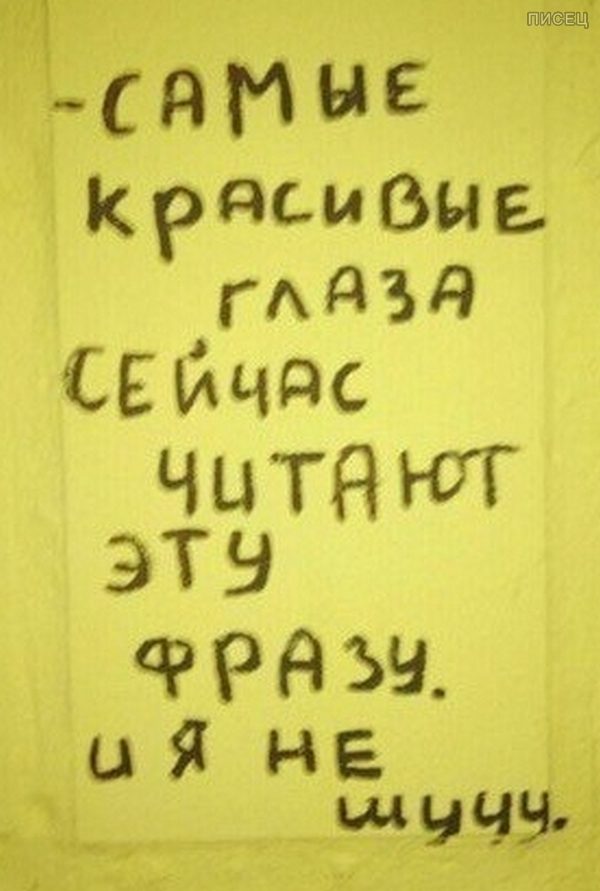 ПИСЕЦ
-САМЫЕ
КРАСИВЫЕ
ГЛАЗА
СЕЙЧАС
ЧИТАЮТ
ЭТУ
ФРАЗУ.
И Я НЕ
ШУЧУ.